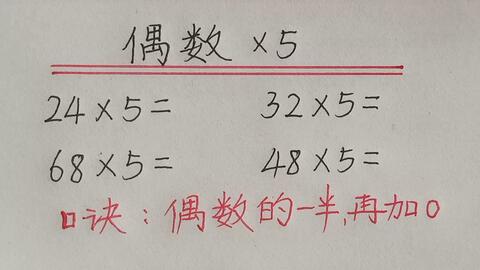 偶数×5
24×5= 32×5=
68×5= 48×5=
口诀:偶数的一半,再加0